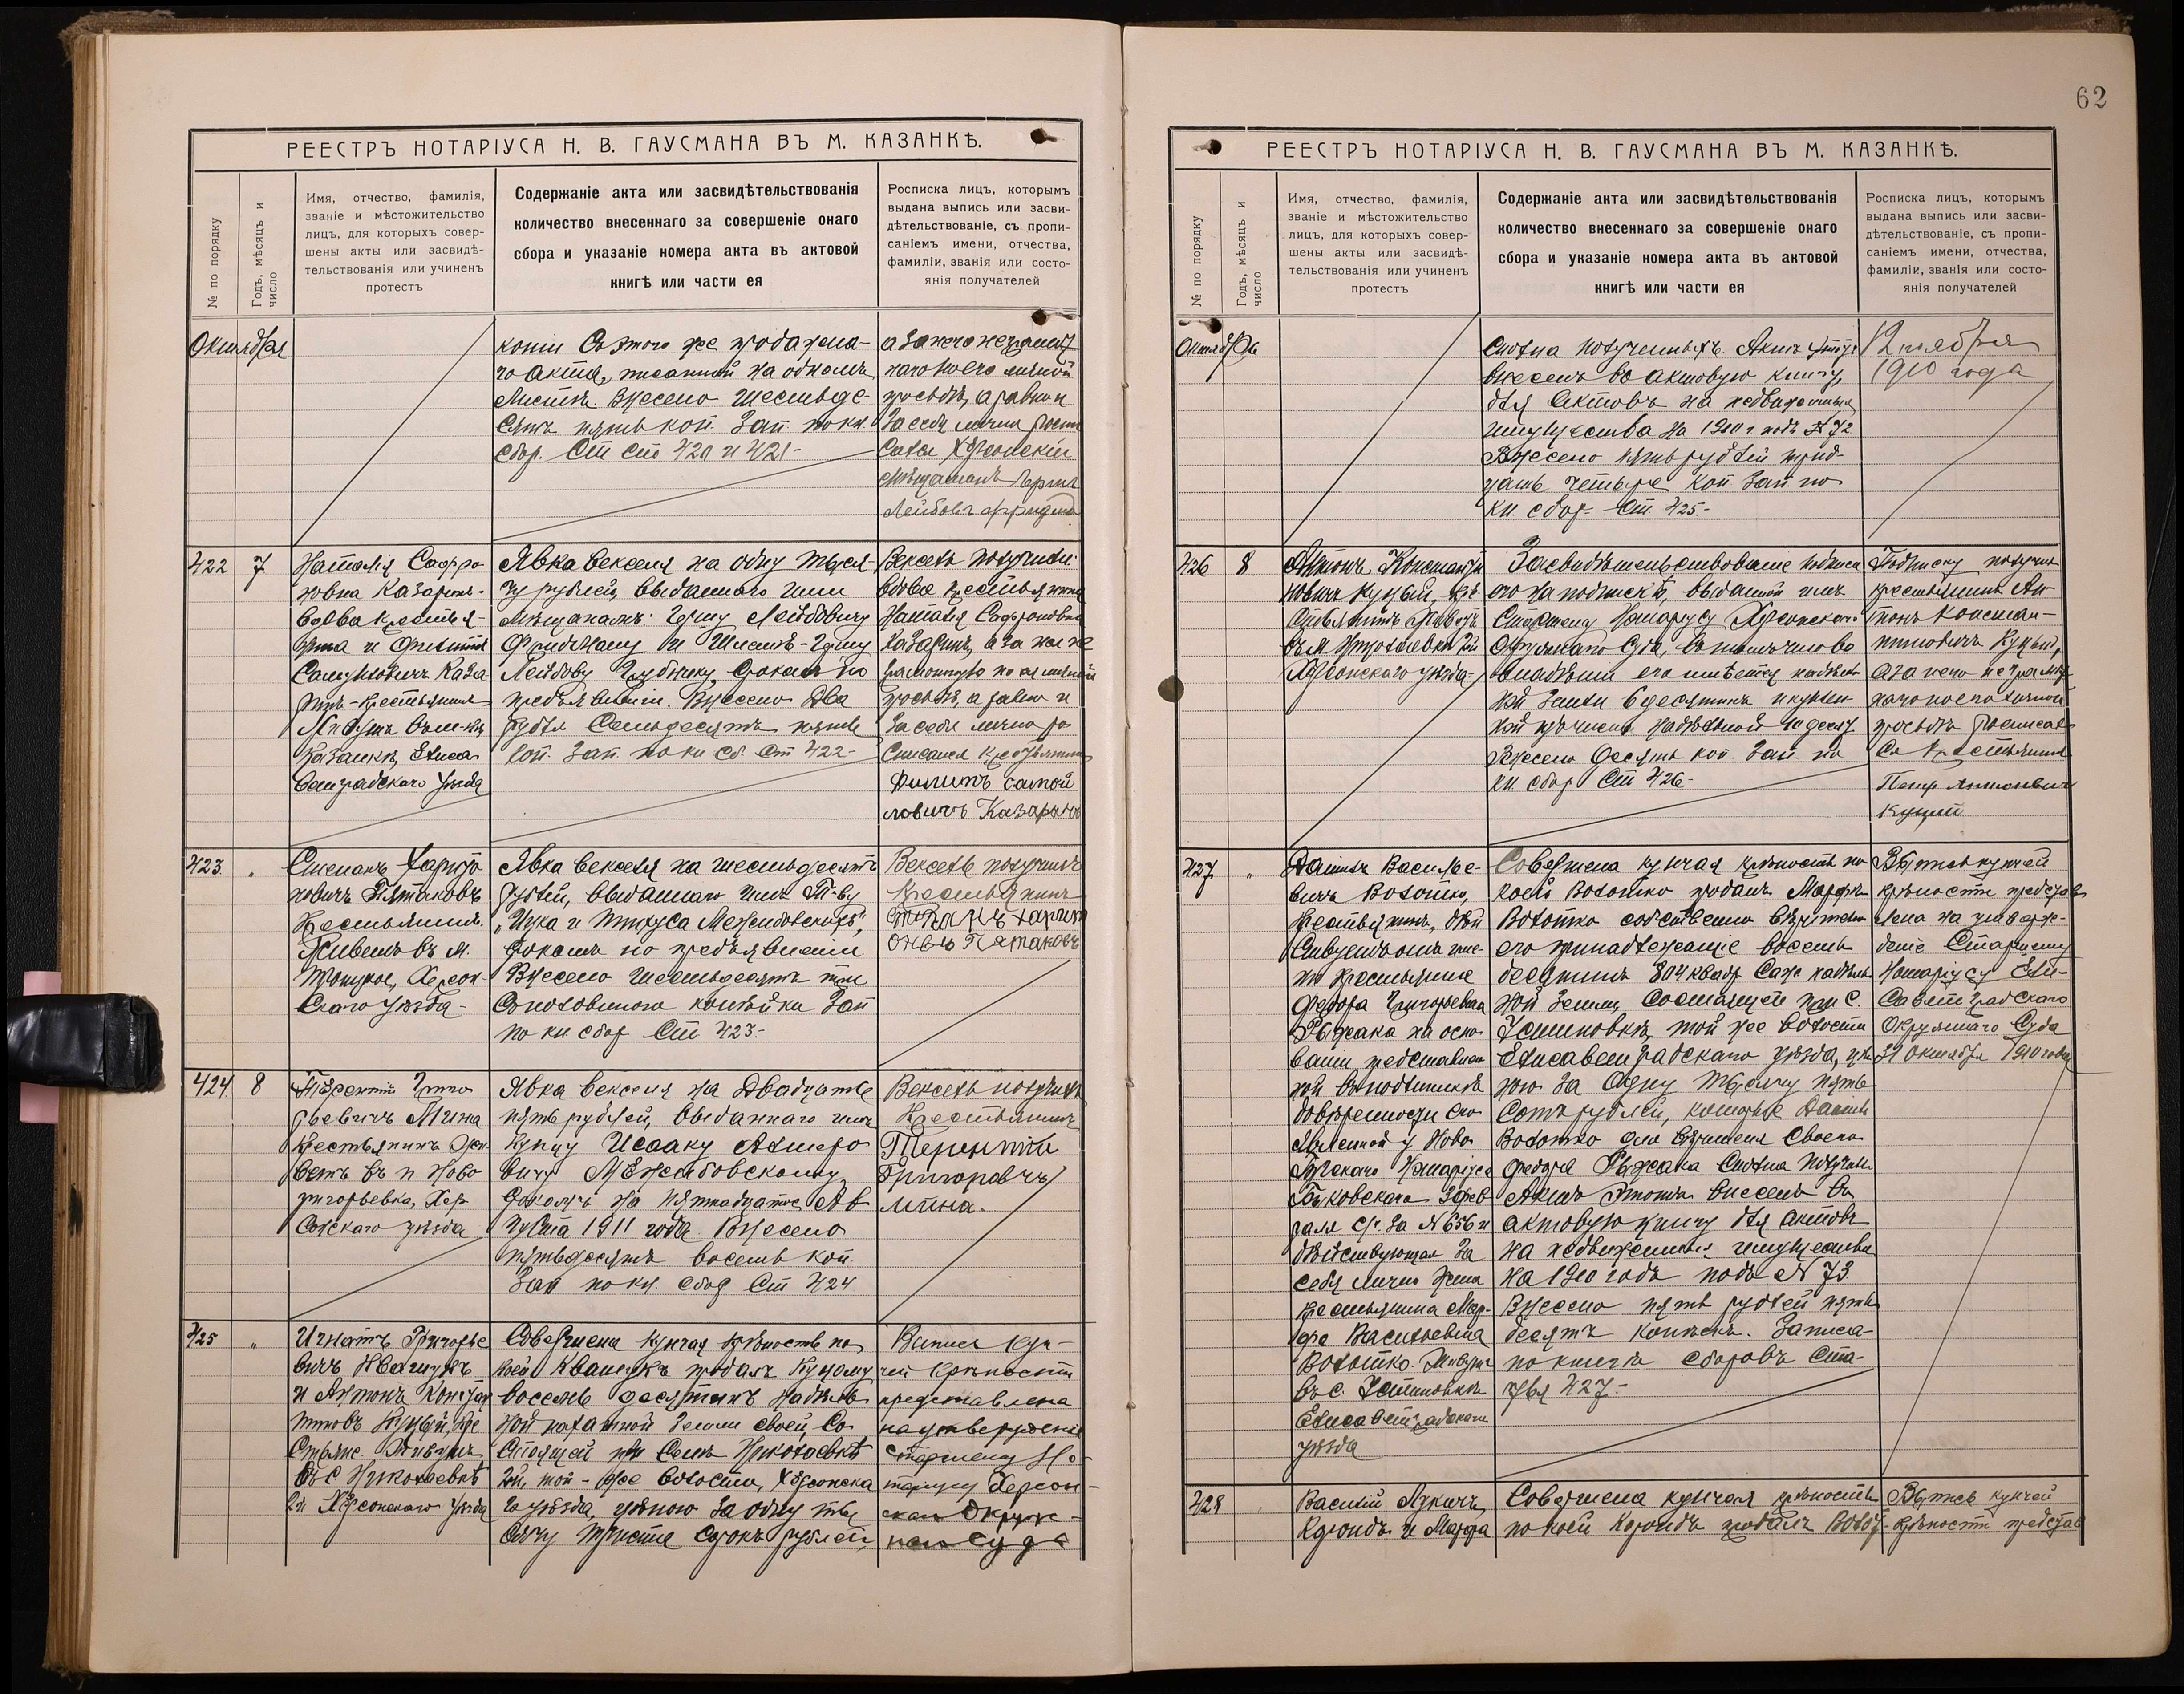 РЕЕСТРЪ НОТАРІУСА Н. В. ГАУСМАНА ВЪ М. КАЗАНКѢ.
№ по порядку
Годъ, мѣсяцъ и
число
Имя, отчество, фамилія,
званіе и мѣстожительство
лицъ, для которыхъ совер-
шены акты или засвидѣ-
тельствованія или учиненъ
протестъ
Содержаніе акта или засвидѣтельствованія
количество внесеннаго за совершеніе онаго
сбора и указаніе номера акта въ актовой
книгѣ или части ея
Росписка лицъ, которымъ
выдана выпись или засви-
дѣтельствованіе, съ пропи-
саніемъ имени, отчества,
фамиліи, званія или состо-
янія получателей
Октября
копіи Съ этого же продажна-
го акта, писанной на одномъ
листѣ. Внесено шестьде-
сятъ пять коп. Зап. по кн.
сбор. Ст ст 420 и 421-
а за него неграмот
наго по его личной
просьбѣ, а равно и
за себя лично роспи
сался Херсонскій
мѣщанинъ
Лейбовъ Фридманъ
422 7
Наталія Сафро-
новна Казарина-
вдова крестья-
нина и Филиппъ
Самуиловичъ Каза
ринъ - крестьянинъ
Живутъ въ м-кѣ
Казанкѣ, Елиса-
ветградскаго уѣзда
Явка векселя на одну тыся-
чу рублей, выданнаго ими
мѣщанамъ: Герцу Лейбовичу
Фридману и
Лейбову срокомъ по
предъявленіи. Внесено два
рубля семьдесятъ пять
коп. Зап. по кн сб. Ст 422-
Вексель получили:
вдова крестьянина
Наталія Сафроновна
Казаринъ, а за нея не
грамотную по ея личной
просьбѣ, а равно и
за себя лично ро-
списался крестьянинъ
Филипъ Самой
ловичъ Казаринъ
423. "
Степанъ Харито
новичъ Пятаковъ
крестьянинъ.
Живетъ въ м.
Троицкое, Херсон-
скаго уѣзда-
Явка векселя на шестьдесятъ
рублей, выданнаго имъ Т-ву
„Ицка и Пинкуса Межибовскихъ“,
срокомъ по предъявленіи
Внесено шестьдесятъ три
съ половиною копѣйки Зап
по кн сбор Ст 423.-
Вексель получилъ
крестьянинъ
Степанъ Харит
оновъ Пятаковъ
424. 8
Терентій Григо
рьевичъ Мина
крестьянинъ Жи-
ветъ въ п Ново
григорьевка, Хер
сонскаго уѣзда
Явка векселя на двадцать
пять рублей, выданнаго имъ
купцу Исааку Алтеро
вичу Межибовскому,
срокомъ на пятнадцатое Ав
густа 1911 года. Внесено
пятьдесятъ восемь коп
Зап по кн. сбор Ст 424
Вексель получилъ
Крестьянинъ
Терентій
Григоровичъ
Мина.
425 "
Игнатъ Григорье
вичъ Квашукъ
и Антонъ Констан
тиновъ Куцый, кре
стьяне. Живутъ
въ с Николаевкѣ
2й Херсонскаго уѣзда
Совершена купчая крѣпость по
коей Квашукъ продалъ Куцому
восемь десятинъ надѣль-
ной пахатной земли своей, со
стоящей при Селѣ Николаевкѣ
2й, той - же волости, Херсонска
го уѣзда, цѣною за одну ты
сячу триста сорокъ рублей,
Выпись куп-
чей крѣпости
представлена
на утвержденіе
старшему Но-
таріусу Херсон-
скаго Окруж-
наго Суда
62
РЕЕСТРЪ НОТАРІУСА Н. В. ГАУСМАНА ВЪ М. КАЗАНКѢ.
№ по порядку
Годъ, мѣсяцъ и
число
Имя, отчество, фамилія,
званіе и мѣстожительство
лицъ, для которыхъ совер-
шены акты или засвидѣ-
тельствованія или учиненъ
протестъ
Содержаніе акта или засвидѣтельствованія
количество внесеннаго за совершеніе онаго
сбора и указаніе номера акта въ актовой
книгѣ или части ея
Росписка лицъ, которымъ
выдана выпись или засви-
дѣтельствованіе, съ пропи-
саніемъ имени, отчества,
фамиліи, званія или состо-
янія получателей
Октября
Сполна полученныхъ. Актъ этотъ
внесенъ въ актовую книгу,
для актовъ на недвижимыя
имущества на 1910 г. подъ № 72.
Внесено пять рублей трид-
цать четыре коп Зап. по
кн. сбор- Ст 425.-
12 ноября
1910 года
426 8
Антонъ Константи
новичъ Куцый, кре
стьянинъ Живетъ
въ Николаевкѣ 2й
Херсонскаго уѣзда-
Засвидѣтельствованіе подписи
его на подпискѣ, выданной имъ
Старшему Нотаріусу Херсонскаго
Окружнаго Суда, въ томъ что во
владѣніи его имѣется надѣль-
ной земли 6 десятинъ и куплен-
ной надѣльной 10 десят.
Внесено десять коп. Зап. по
кн. сбор Ст 426-
Подписку получилъ
крестьянинъ Ан-
тонъ Констан-
тиновичъ Куцый,
а за него неграмот
наго по его личной
просьбѣ росписал-
ся крестьянинъ
Петр Антоновичъ
Куцый
427 "
Даніилъ Василье-
вичъ Волошко,
крестьянинъ, дѣй
ствующій отъ име-
ни крестьянина
Федора Григорьевича
Рыжака на осно-
ваніи представлен
ной въ подлинникѣ
довѣренности его
явленной у Ново-
Бугскаго Нотаріуса
Быковскаго 3 фев
раля с/г. за № 656 и
дѣйствующая за
себя лично жена
крестьянина Мар-
фа Васильевна
Волошко. Живутъ
въ с. Устиновкѣ
Елисаветградскаго
уѣзда
Совершена купчая крѣпость по
коей Волошко продалъ Марфѣ
Волошко собственно вѣрителю
его принадлежащіе восемь
десятинъ 804 квадр. саж надѣль
ной земли, состоящей при С.
Устиновкѣ, той же волости
Елисаветградскаго уѣзда, цѣ-
ною за одну тысячу пять-
сотъ рублей, которые Даніилъ
Волошко для вѣрителя своего
Федора Рыжака сполна получилъ.
Актъ этотъ внесенъ въ
актовую книгу для актовъ
на недвижимыя имущества
на 1910 годъ подъ № 73.
Внесено пять рублей пять-
десятъ копѣекъ. Записа-
но по книгѣ сборовъ Ста-
тья 427.-
Выпись купчей
крѣпости представ
лена на утверж-
деніе Старшему
Нотаріусу Ели-
саветградскаго
Окружнаго Суда
31 Октября 1910 года
428 "
Василій Лукичъ
и Марфа
Совершена купчая крѣпость
по коей продалъ
Выпись купчей
крѣпости представ